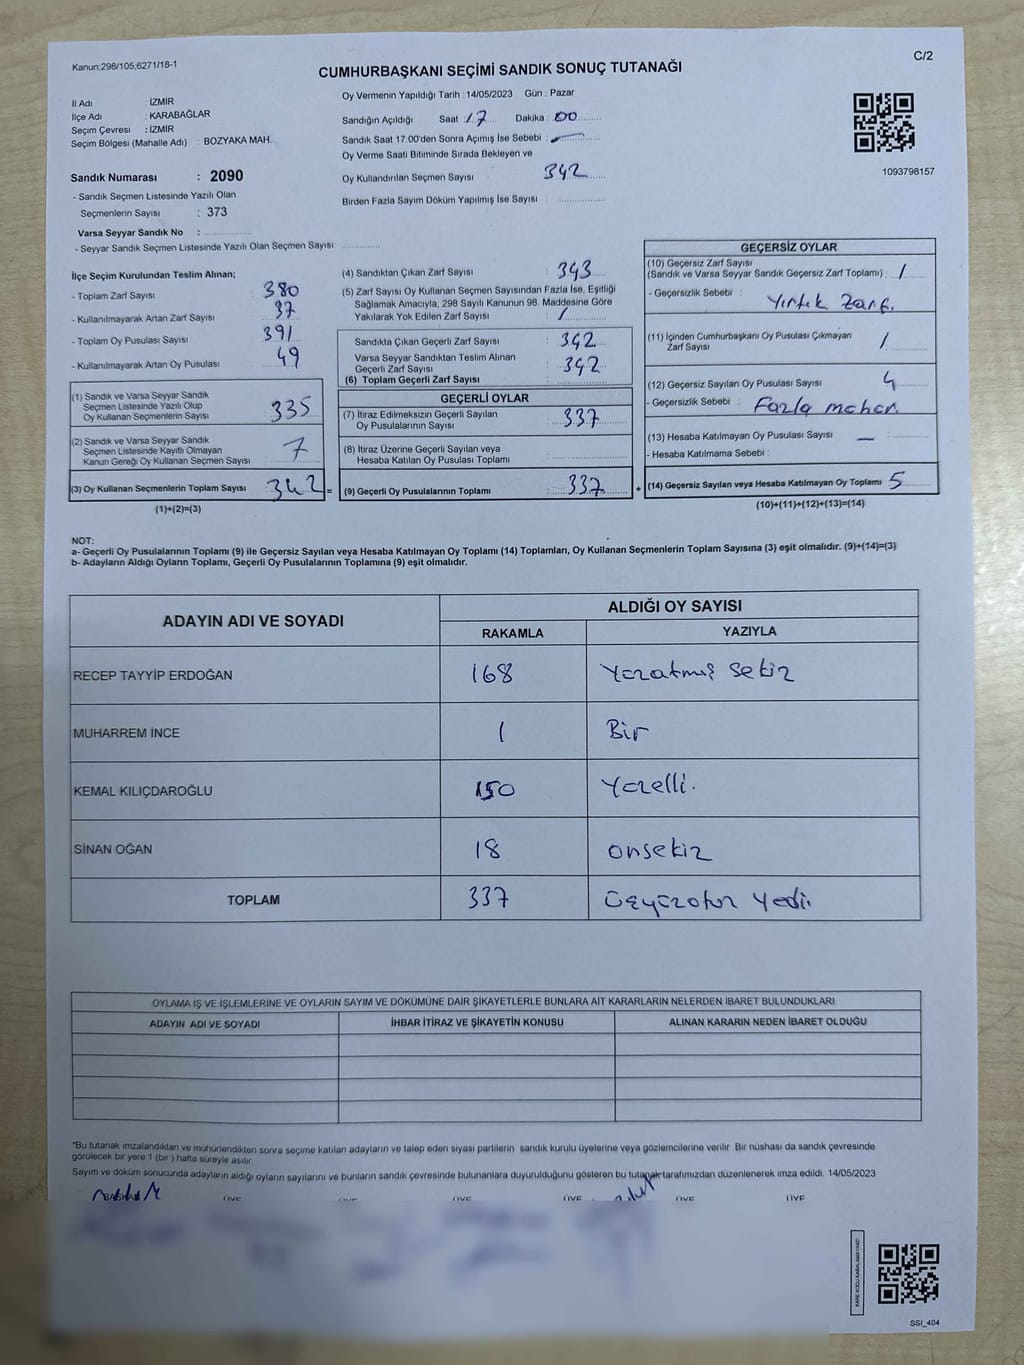 Kanun;298/105,6271/18-1
C/2
CUMHURBAŞKANI SEÇİMİ SANDIK SONUÇ TUTANAĞI
İl Adı : İZMİR
İlçe Adı : KARABAĞLAR
Seçim Çevresi : İZMİR
Seçim Bölgesi (Mahalle Adı) : BOZYAKA MAH.
Sandık Numarası : 2090
- Sandık Seçmen Listesinde Yazılı Olan
Seçmenlerin Sayısı : 373
Varsa Seyyar Sandık No :
- Seyyar Sandık Seçmen Listesinde Yazılı Olan Seçmen Sayısı:
Oy Vermenin Yapıldığı Tarih :14/05/2023 Gün : Pazar
Sandığın Açıldığı Saat :17 Dakika :00
Sandık Saat 17:00'den Sonra Açımış İse Sebebi : —
Oy Verme Saati Bitiminde Sırada Bekleyen ve
Oy Kullandırılan Seçmen Sayısı 342
Birden Fazla Sayım Döküm Yapılmış İse Sayısı :
1093798157
İlçe Seçim Kurulundan Teslim Alınan;
- Toplam Zarf Sayısı : 380
- Kullanılmayarak Artan Zarf Sayısı : 37
- Toplam Oy Pusulası Sayısı : 391
- Kullanılmayarak Artan Oy Pusulası : 49
(1) Sandık ve Varsa Seyyar Sandık
Seçmen Listesinde Yazılı Olup
Oy Kullanan Seçmenlerin Sayısı : 335
(2) Sandık ve Varsa Seyyar Sandık
Seçmen Listesinde Kayıtlı Olmayan
Kanun Gereği Oy Kullanan Seçmen Sayısı : 7
(3) Oy Kullanan Seçmenlerin Toplam Sayısı : 342 =
(1)+(2)=(3)
(4) Sandıktan Çıkan Zarf Sayısı : 343
(5) Zarf Sayısı Oy Kullanan Seçmen Sayısından Fazla İse, Eşitliği
Sağlamak Amacıyla, 298 Sayılı Kanunun 98. Maddesine Göre
Yakılarak Yok Edilen Zarf Sayısı : 1
Sandıkta Çıkan Geçerli Zarf Sayısı : 342
Varsa Seyyar Sandıktan Teslim Alınan
Geçerli Zarf Sayısı : 342
(6) Toplam Geçerli Zarf Sayısı :
GEÇERLİ OYLAR
(7) İtiraz Edilmeksizin Geçerli Sayılan
Oy Pusulalarının Sayısı : 337
(8) İtiraz Üzerine Geçerli Sayılan veya
Hesaba Katılan Oy Pusulası Toplamı :
(9) Geçerli Oy Pusulalarının Toplamı : 337 +
GEÇERSİZ OYLAR
(10) Geçersiz Zarf Sayısı
(Sandık ve Varsa Seyyar Sandık Geçersiz Zarf Toplamı) : 1
- Geçersizlik Sebebi : Yırtık Zarf.
(11) İçinden Cumhurbaşkanı Oy Pusulası Çıkmayan
Zarf Sayısı : /
(12) Geçersiz Sayılan Oy Pusulası Sayısı : 4
- Geçersizlik Sebebi : Fazla
(13) Hesaba Katılmayan Oy Pusulası Sayısı : —
- Hesaba Katılmama Sebebi :
(14) Geçersiz Sayılan veya Hesaba Katılmayan Oy Toplamı : 5
(10)+(11)+(12)+(13)=(14)
NOT:
a- Geçerli Oy Pusulalarının Toplamı (9) ile Geçersiz Sayılan veya Hesaba Katılmayan Oy Toplamı (14) Toplamları, Oy Kullanan Seçmenlerin Toplam Sayısına (3) eşit olmalıdır. (9)+(14)=(3)
b- Adayların Aldığı Oyların Toplamı, Geçerli Oy Pusulalarının Toplamına (9) eşit olmalıdır.
ADAYIN ADI VE SOYADI ALDIĞI OY SAYISI
RAKAMLA YAZIYLA
RECEP TAYYİP ERDOĞAN 168 Yüzatmış Sekiz
MUHARREM İNCE 1 Bir
KEMAL KILIÇDAROĞLU 150 Yüzelli.
SİNAN OĞAN 18 onsekiz
TOPLAM 337 üçyüzotuz Yedi.
OYLAMA İŞ VE İŞLEMLERİNE VE OYLARIN SAYIM VE DÖKÜMÜNE DAİR ŞİKAYETLERLE BUNLARA AİT KARARLARIN NELERDEN İBARET BULUNDUKLARI
ADAYIN ADI VE SOYADI İHBAR İTİRAZ VE ŞİKAYETİN KONUSU ALINAN KARARIN NEDEN İBARET OLDUĞU
*Bu tutanak imzalandıktan ve mühürlendikten sonra seçime katılan adayların ve talep eden siyasi partilerin sandık kurulu üyelerine veya gözlemcilerine verilir. Bir nüshası da sandık çevresinde
görülecek bir yere 1 (bir ) hafta süreyle asılır.
Sayım ve döküm sonucunda adayların aldığı oyların sayılarını ve bunların sandık çevresinde bulunanlara duyurulduğunu gösteren bu tutanak tarafımızdan düzenlenerek imza edildi. 14/05/2023
BAŞKAN ÜYE ÜYE ÜYE ÜYE ÜYE ÜYE
SSI_404